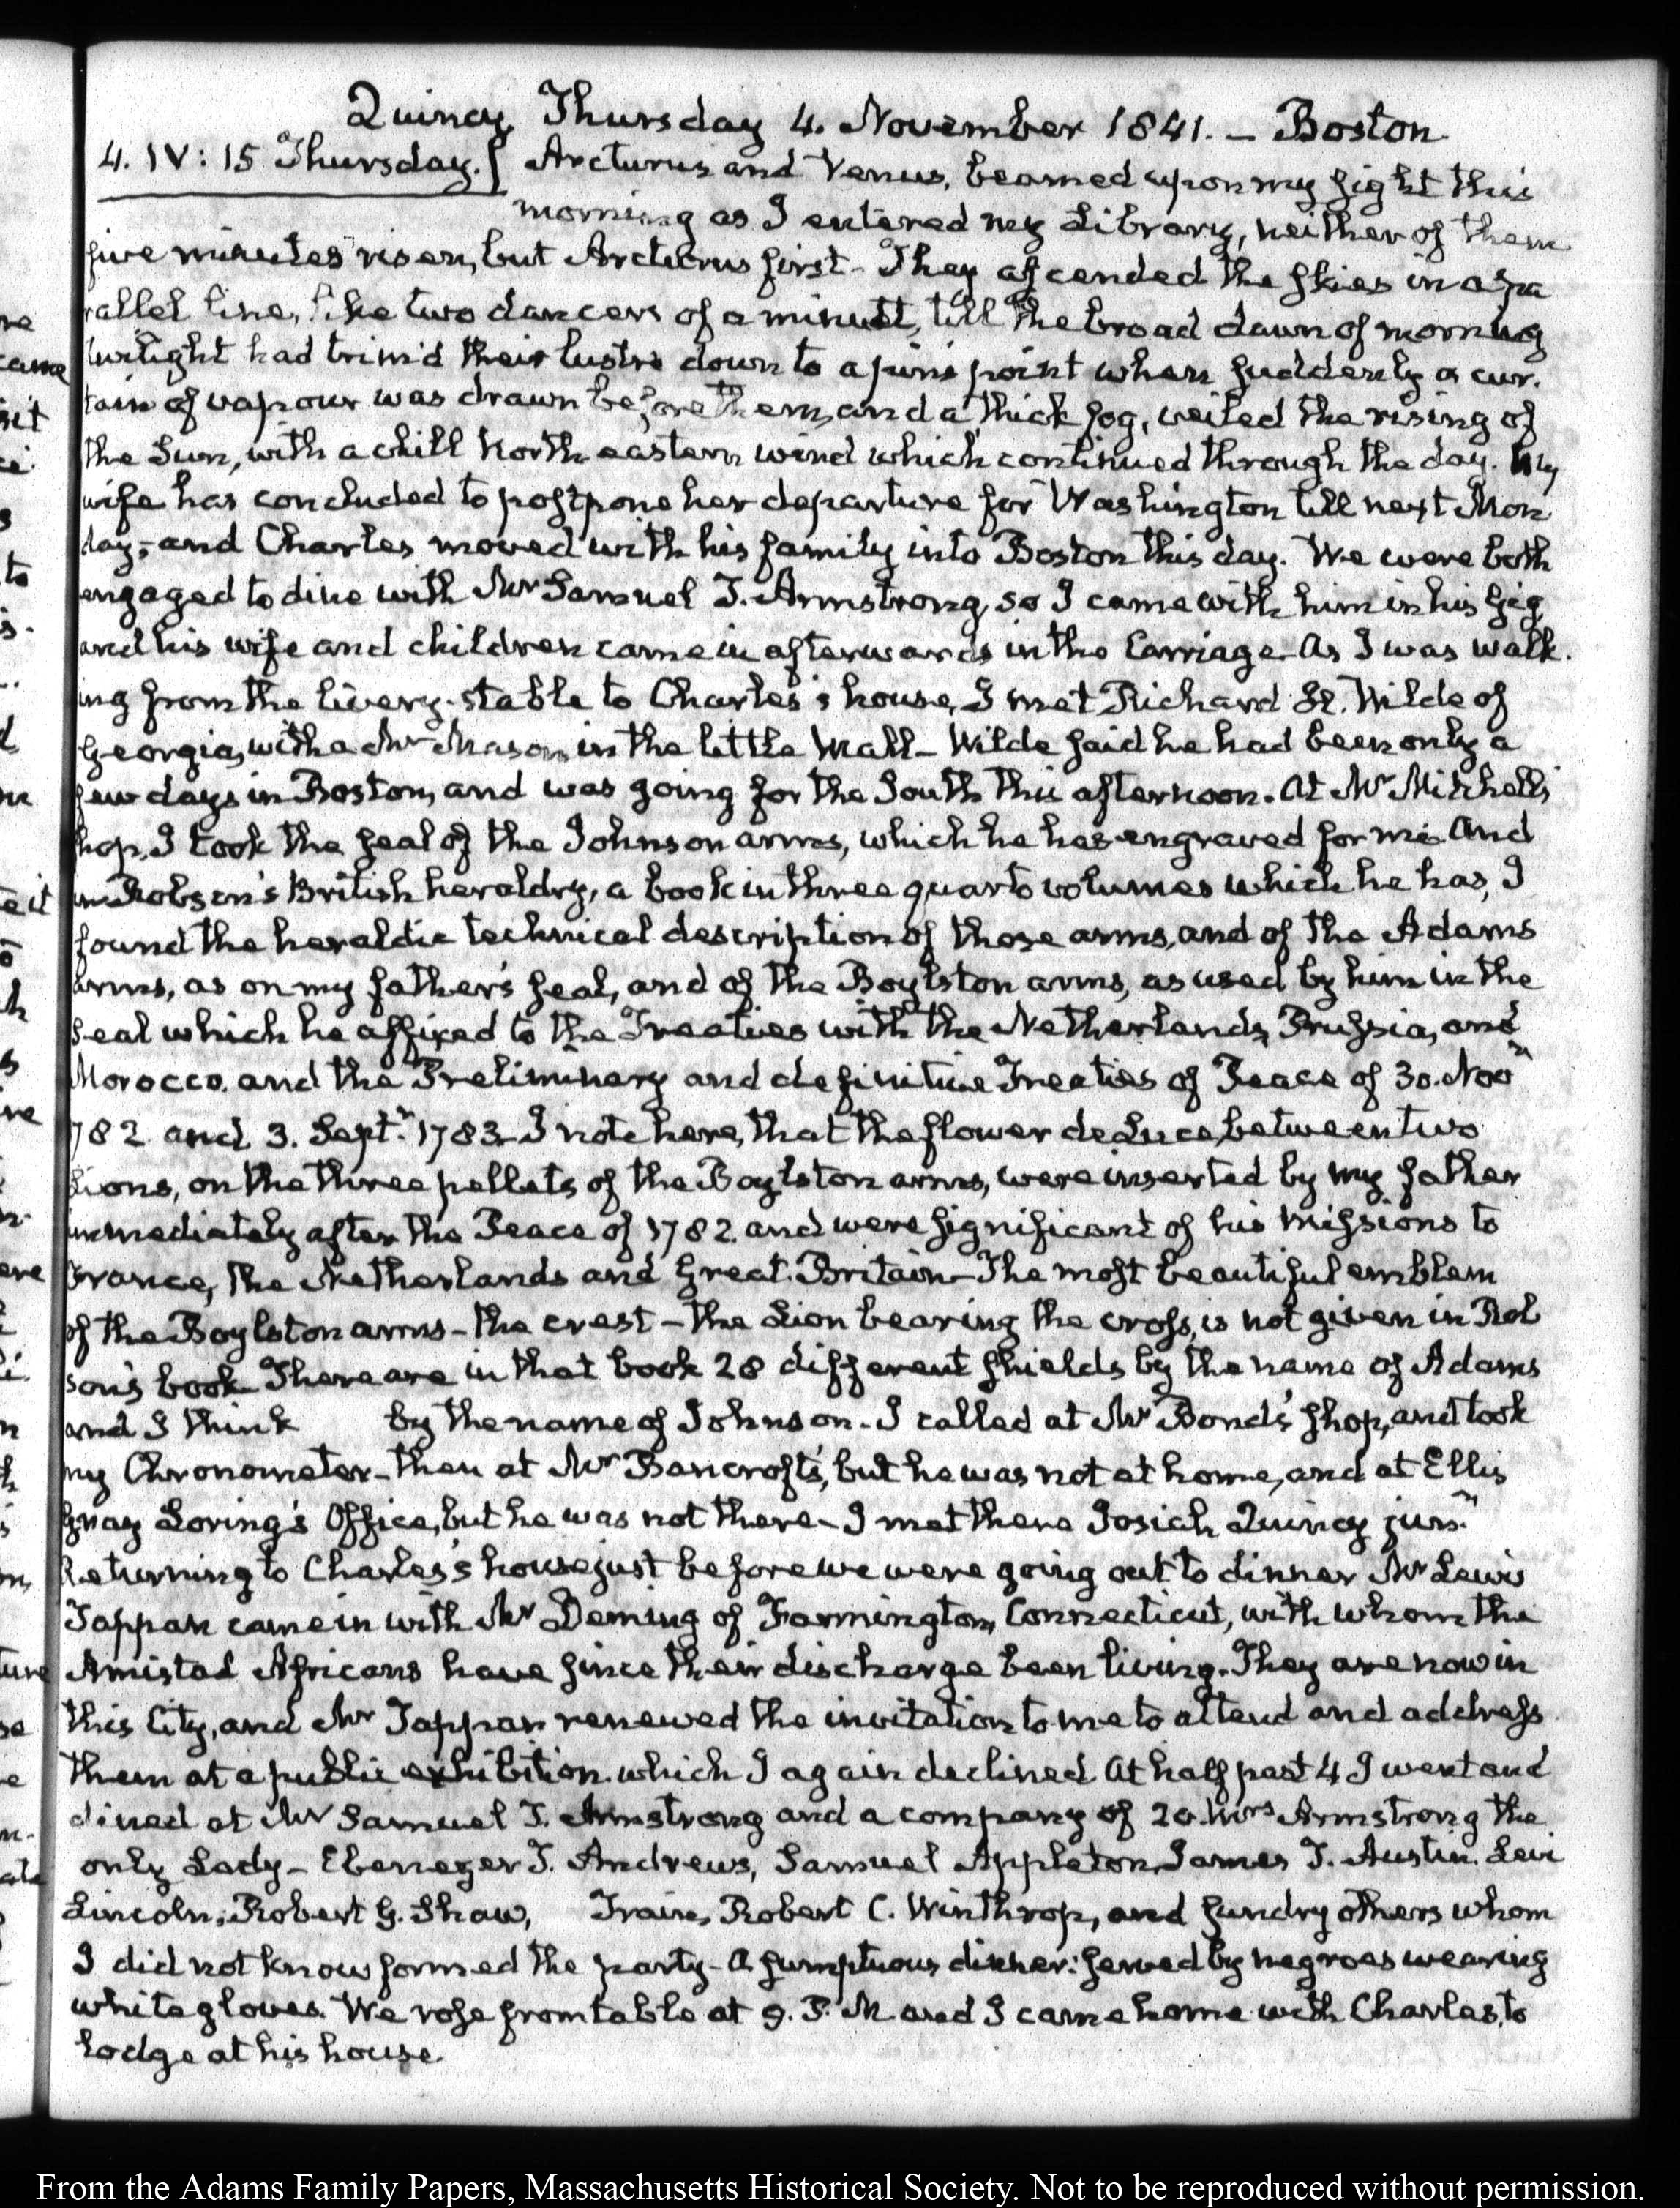 Quincy Thursday 4. November 1841. — Boston
4. IV: 15 Thursday. Arcturus and Venus, beamed upon my sight this
morning as I entered my Library, neither of them
five minutes risen, but Arcturus first — They ascended the skies in a pa
rallel line, like two dancers of a minuet, till the broad dawn of morning
twilight had trim'd their lustre down to a pin's point when suddenly a cur-
tain of vapour was drawn before them, and a thick fog, veiled the rising of
the Sun, with a chill north eastern wind which continued through the day. My
wife has concluded to postpone her departure for Washington till next Mon
day;— and Charles moved with his family into Boston this day. We were both
engaged to dine with Mr Samuel T. Armstrong, so I came with him in his Gig
and his wife and children came in afterwards in the Carriage. As I was walk-
ing from the livery-stable to Charles's house, I met Richard H. Wilde of
Georgia, with a Mr Mason in the little Mall — Wilde said he had been only a
few days in Boston, and was going for the South this afternoon. At Mr Mitchell's
shop, I took the seal of the Johnson arms, which he has engraved for me. And
in Robson's British heraldry, a book in three quarto volumes which he has, I
found the heraldic technical description of those arms, and of the Adams
arms, as on my father's seal, and of the Boylston arms, as used by him in the
seal which he affixed to the Treaties with the Netherlands, Prussia, and
Morocco. and the Preliminary and definitive Treaties of Peace of 30. Novr
1782 and 3. Septr. 1783— I note here, that the flower de Luce, between two
Lions, on the three pellets of the Boylston arms, were inserted by my father
immediately after the Peace of 1782. and were significant of his Missions to
France, the Netherlands and Great Britain— The most beautiful emblem
of the Boylston arms — the crest — the Lion bearing the cross, is not given in Rob
son's book. There are in that book 28 different shields by the name of Adams
and I think by the name of Johnson — I called at Mr Bond's shop, and took
my Chronometer — then at Mr Bancroft's, but he was not at home, and at Ellis
Gray Loring's Office, but he was not there — I met there Josiah Quincy junr
Returning to Charles's house just before we were going out to dinner Mr Lewis
Tappan came in with Mr Deming of Farmington, Connecticut, with whom the
Amistad Africans have since their discharge been living. They are now in
this City, and Mr Tappan renewed the invitation to me to attend and address
them at a public exhibition. which I again declined. At half past 4 I went and
dined at Mr Samuel T. Armstrong and a company of 20. Mrs Armstrong the
only Lady — Ebenezer T. Andrews, Samuel Appleton, James T. Austin. Levi
Lincoln, Robert G. Shaw, Train, Robert C. Winthrop, and sundry others whom
I did not know formed the party — A sumptuous dinner: served by negroes wearing
white gloves. We rose from table at 9. P. M. and I came home with Charles, to
lodge at his house.
From the Adams Family Papers, Massachusetts Historical Society. Not to be reproduced without permission.